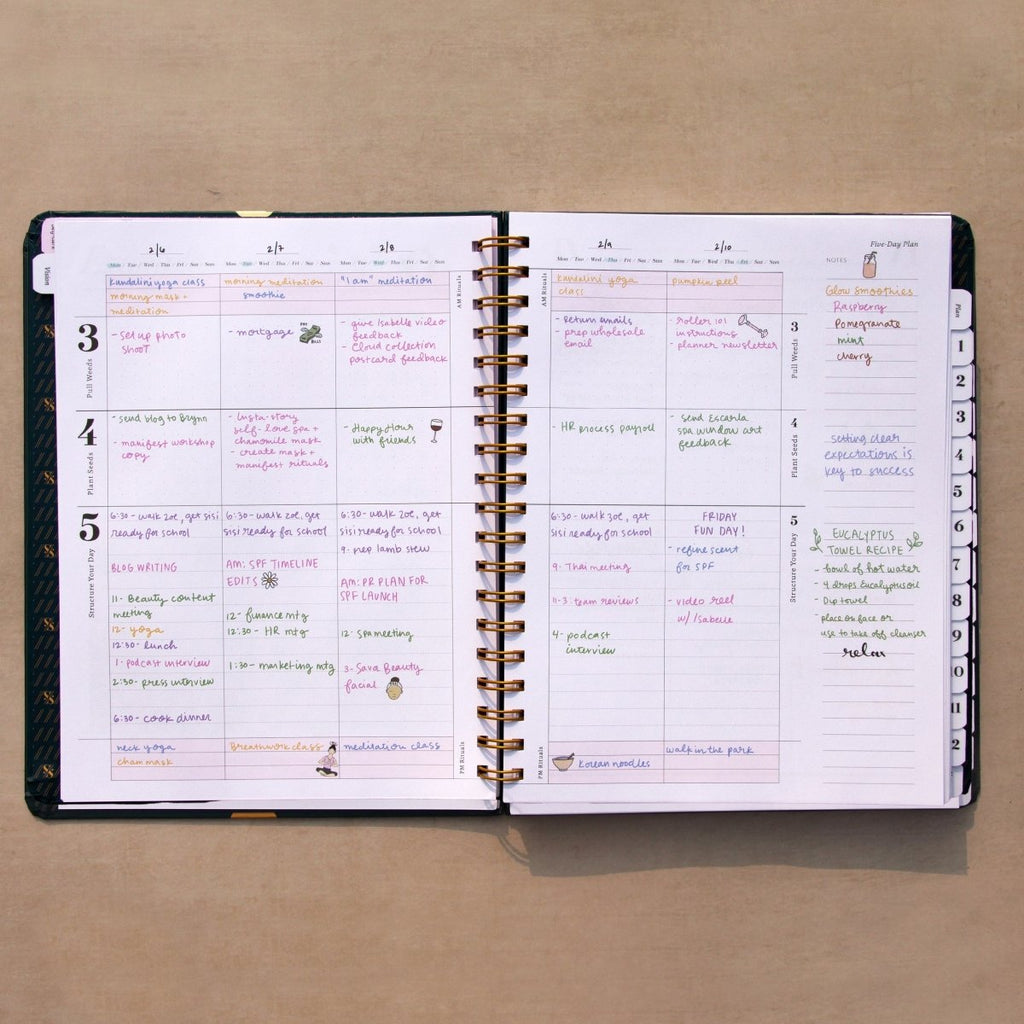 2/6
Mon / Tue / Wed / Thu / Fri / Sat / Sun
kundalini yoga class
morning mask +
meditation
3
Pull Weeds
- Set up photo
shoot
4
Plant Seeds
- send blog to Brynn
- manifest workshop
copy
5
Structure Your Day
6:30 - walk zoe, get sisi
ready for school
BLOG WRITING
11 - Beauty content
meeting
12 - yoga
12:30 - lunch
1 - podcast interview
2:30 - press interview
6:30 - cook dinner
neck yoga
cham mask
2/7
Mon / Tue / Wed / Thu / Fri / Sat / Sun
morning meditation
smoothie
- mortgage
- Insta-story
self-love spa +
chamomile mask
- create mask +
manifest rituals
6:30 - walk zoe, get
sisi ready for school
AM: SPF TIMELINE
EDITS
12 - finance mtg
12:30 - HR mtg
1:30 - marketing mtg
Breathwork class
2/8
Mon / Tue / Wed / Thu / Fri / Sat / Sun
"I am" meditation
- give Isabelle video
feedback
- Cloud collection
postcard feedback
- Happy Hour
with friends
6:30 - walk zoe, get
sisi ready for school
9 - prep lamb stew
AM: PR PLAN FOR
SPF LAUNCH
12 - spa meeting
3 - Sava Beauty
facial
meditation class
AM Rituals
PM Rituals
2/9
Mon / Tue / Wed / Thu / Fri / Sat / Sun
AM Rituals
kundalini yoga
class
- Return emails
- prep wholesale
email
- HR process payroll
6:30 - walk zoe, get
sisi ready for school
9 - Thai meeting
11-3 team reviews
4 - podcast
interview
PM Rituals
Korean noodles
2/10
Mon / Tue / Wed / Thu / Fri / Sat / Sun
pumpkin peel
- roller 101
instructions
- planner newsletter
- send Escarla
spa window art
feedback
FRIDAY
FUN DAY!
- refine scent
for SPF
- video reel
w/ Isabelle
walk in the park
3
Pull Weeds
4
Plant Seeds
5
Structure Your Day
Five-Day Plan
NOTES
Glow smoothies
Raspberry
Pomegranate
mint
cherry
setting clear
expectations is
key to success
EUCALYPTUS
TOWEL RECIPE
- bowl of hot water
- 4 drops Eucalyptus oil
- Dip towel
- place on face or
use to take off cleanser
relax
Vision
Plan
1
2
3
4
5
6
7
8
9
10
11
2